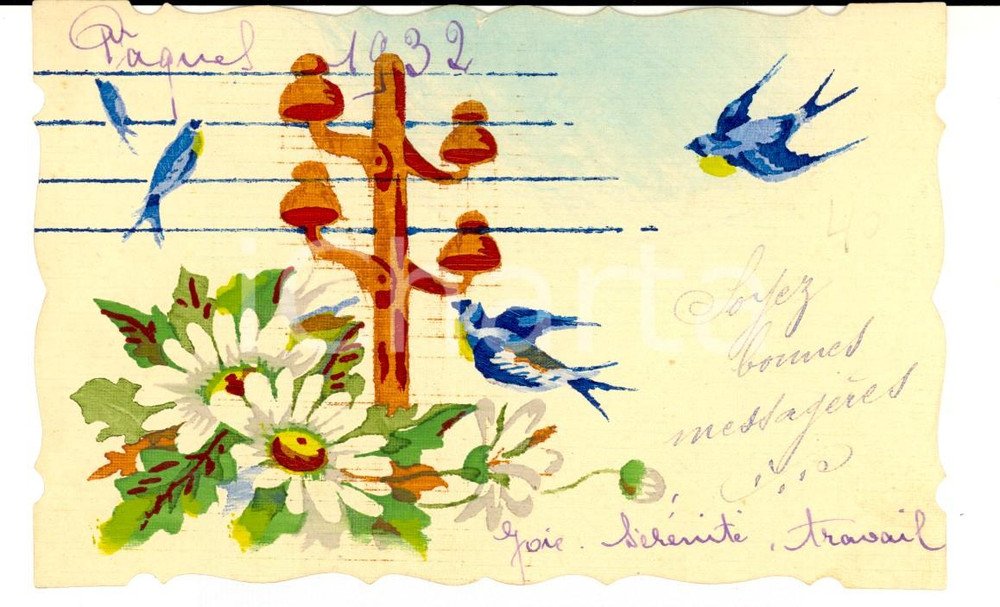 Pâques 1932
iCharta
Soyez
bonnes
messagères
Joie . Sérénité . travail